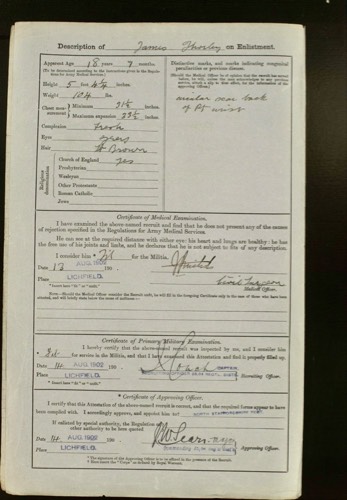 Description of James Thorley on Enlistment.
Apparent Age 18 years 7 months.
(To be determined according to the instructions given in the Regulations for Army Medical Services.)
Height 5 feet 4¼ inches
Weight 104 lbs.
Chest measurement { Minimum 31½ inches
Maximum expansion 33½ inches
Complexion Fresh
Eyes Grey
Hair Lt Brown
Religious denomination
Church of England yes
Presbyterian
Wesleyan
Other Protestants
Roman Catholic
Jews
Distinctive marks, and marks indicating congenital peculiarities or previous disease.
(Should the Medical Officer be of opinion that the recruit has served before, he will, unless the man acknowledges to any previous service, attach a slip to that effect, for the information of the approving Officer).
scar back
of Rt wrist
Certificate of Medical Examination.
I have examined the above-named recruit and find that he does not present any of the causes of rejection specified in the Regulations for Army Medical Services.
He can see at the required distance with either eye; his heart and lungs are healthy; he has the free use of his joints and limbs, and he declares that he is not subject to fits of any description.
I consider him * fit for the Militia.
Date 13 AUG. 1902 190
Place LICHFIELD.
Civil Surgeon
Medical Officer.
* Insert here "fit" or "unfit."
Certificate of Primary Military Examination.
I hereby certify that the above-named recruit was inspected by me, and I consider him
* Fit for service in the Militia, and that I have caused this Attestation and properly filled up.
Date 14 AUG. 1902 190
Place LICHFIELD.
CAPTAIN
Recruiting Officer.
* Insert here "fit" or "unfit."
* Certificate of Approving Officer.
I certify that this Attestation of the above-named recruit is correct, and that the required forms appear to have been complied with. I accordingly approve, and appoint him to†
If enlisted by special authority, the Regulation or other authority to be here quoted
Date 14 AUG. 1902 190
Place LICHFIELD.
Major
Approving Officer.
* The signature of the Approving Officer is to be affixed in the presence of the Recruit.
† Here insert the "Corps" as defined by Royal Warrant.